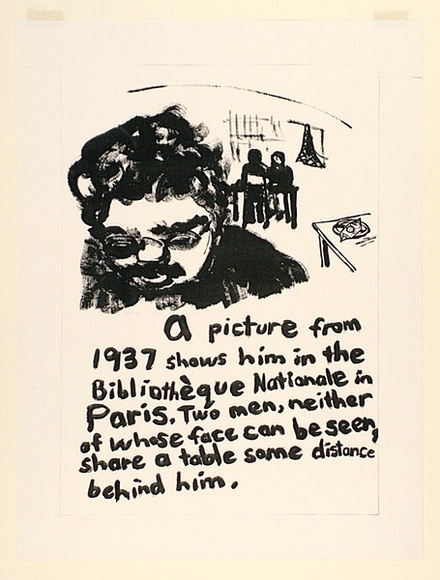 a picture from
1937 shows him in the
Bibliothèque Nationale in
Paris. Two men, neither
of whose face can be seen,
share a table some distance
behind him.